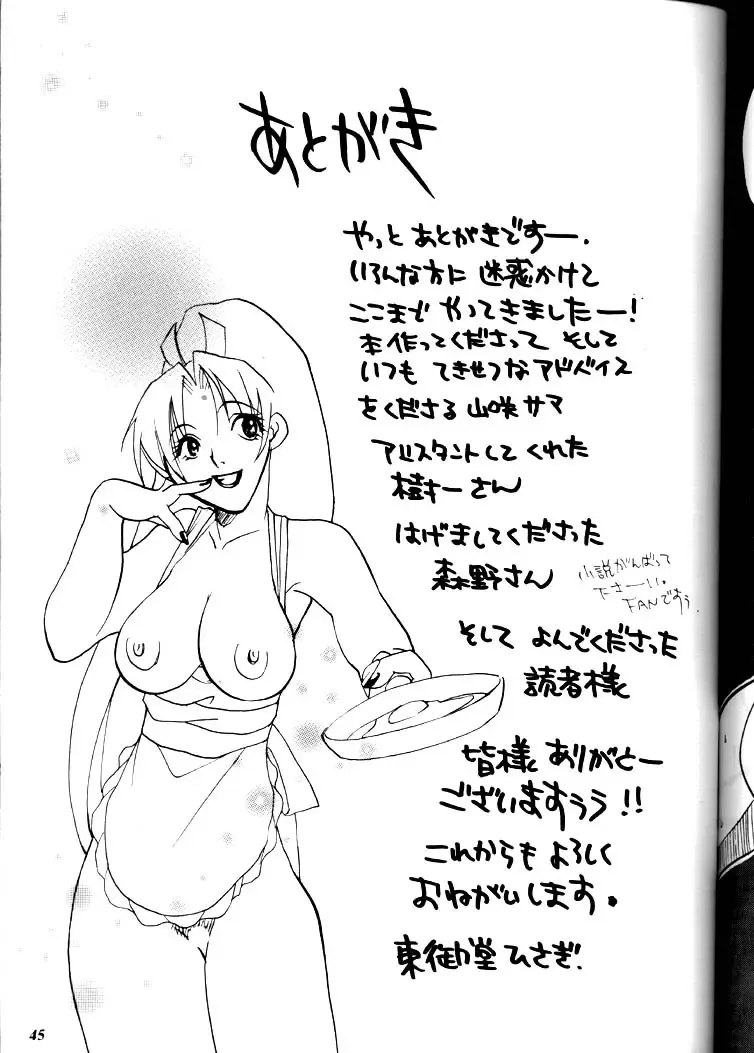 あとがき
やっと あとがきですー.
いろんな方に 迷惑かけて
ここまで やってきましたー!
本作ってくださって そして
いつも てきせつな アドバイス
をくださる 山咲サマ
アシスタントして くれた
樹一さん
はげましてくださった
森野さん
小説がんばって
下さーい。
FANですぅ.
そして よんでくださった
読者様
皆様 ありがとー
ございますぅぅ!!
これからも よろしく
おねがいします。
東御堂ひさぎ.
45